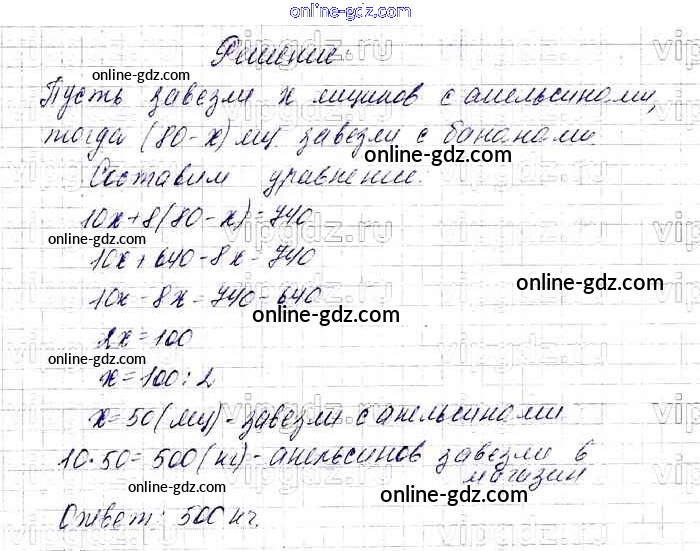 online-gdz.com
Решение
vipgdz.ru
online-gdz.com
Пусть завезли x ящиков с апельсинами,
тогда (80-x) ящ завезли с бананами.
online-gdz.com
Составим уравнение.
10x+8(80-x)=740
online-gdz.com
vipgdz.ru
10x+640-8x=740
online-gdz.com
10x-8x=740-640
online-gdz.com
2x=100
online-gdz.com
x=100:2
vipgdz.ru
x=50(ящ)-завезли с апельсинами
online-gdz.com
10·50=500(кг)-апельсинов завезли в
магазин
online-gdz.com
online-gdz.com
Ответ: 500 кг.
online-gdz.com